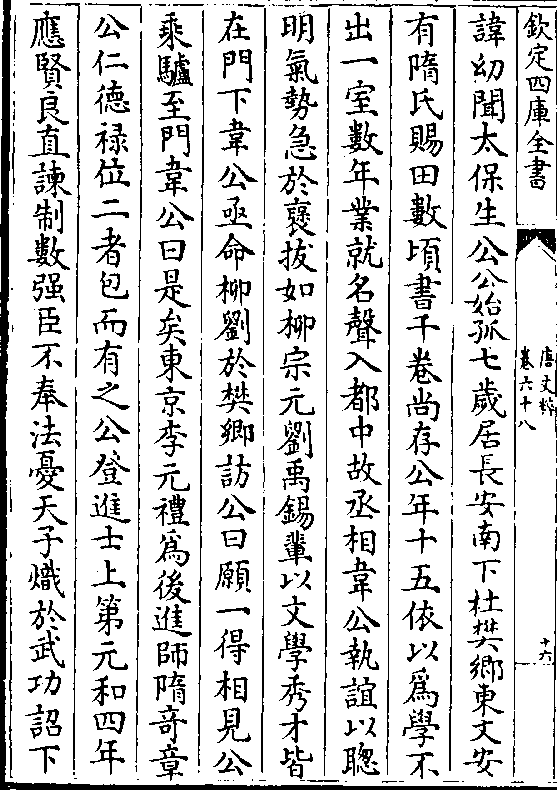 欽定四庫全書
唐文粹
卷六十八
十六
諱幼聞太保生公公始孤七歲居長安南下杜樊鄉東文安
有隋氏賜田數頃書千卷尚存公年十五依以為學不
出一室數年業就名聲入都中故丞相韋公執誼以聰
明氣勢急於褒拔如柳宗元劉禹錫輩以文學秀才皆
在門下韋公亟命柳劉於樊鄉訪公曰願一得相見公
乘驢至門韋公曰是矣東京李元禮為後進師隋竒章
公仁德禄位二者包而有之公登進士上第元和四年
應賢良直諫制數强臣不奉法憂天子熾於武功詔下